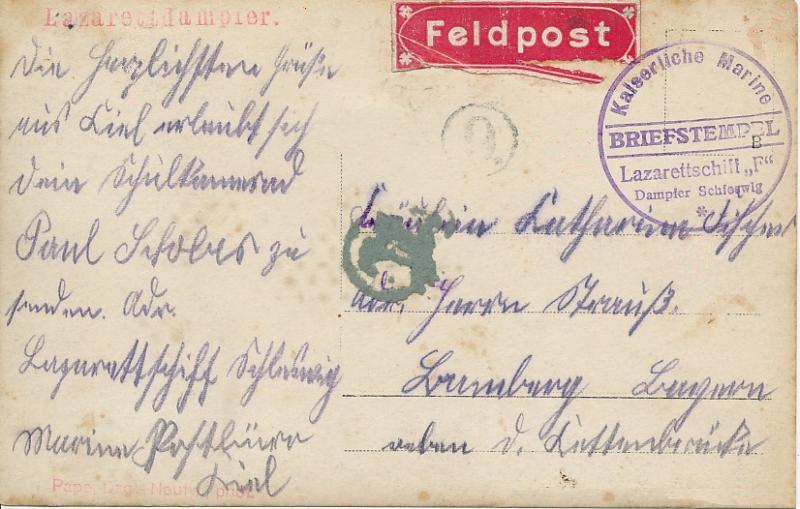 Lazarettdampfer.
Feldpost
Die herzlichsten Grüße
aus Kiel erlaubt sich
Dein Schulkamerad
Paul Scholas zu
senden. Adr.
Lazarettschiff Schleswig
Marine Postbüro
Kiel
Kaiserliche Marine
BRIEFSTEMPEL
B
Lazarettschiff „F"
Dampfer Schleswig
Fräulein Katharina Fischer
adr. Herrn Strauß.
Bamberg Bayern
neben d. Kettenbrücke